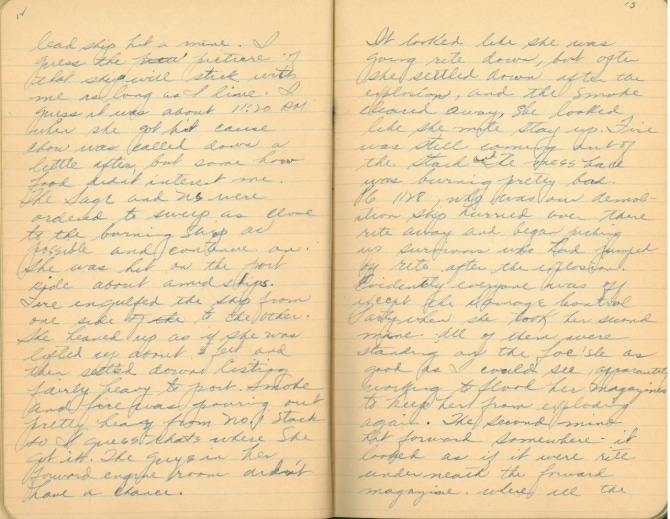 12
lead ship hit a mine. I
guess the picture of
that ship will stick with
me as long as I live. I
guess it was about 11:20 AM
when she got hit cause
chow was called down a
little after, but some how
food didnt interest me.
The Sage and us were
ordered to sweep as close
to the burning ship as
possible and continue on.
She was hit on the port
side about amidships.
Fire engulfed the ship from
one side of the to the other.
She heaved up as if she was
lifted up about 2 feet and
then settled down listing
fairly heavy to port. Smoke
and fire was pouring out
pretty heavy from No. 1 stack
so I guess thats where she
got it. The guys in her
forward engine room didn't
have a chance.
13
It looked like she was
going rite down, but after
she settled down after the
explosion, and the smoke
cleared away, she looked
like she mite stay up. Fire
was still coming out of
the stack and the mess hall
was burning pretty bad.
Pc 1128, who was our demol-
ition ship hurried over there
rite away and began picking
up survivors who had jumped
off rite after the explosion.
Evidently everyone was off
except the damage control
party when she took her second
mine. All of them were
standing on the foc'sle as
good as I could see, apparently
working to flood her magazines
to keep her from exploding
again. The second mine
hit forward somewhere it
looked as if it were rite
underneath the forward
magazine. where all the